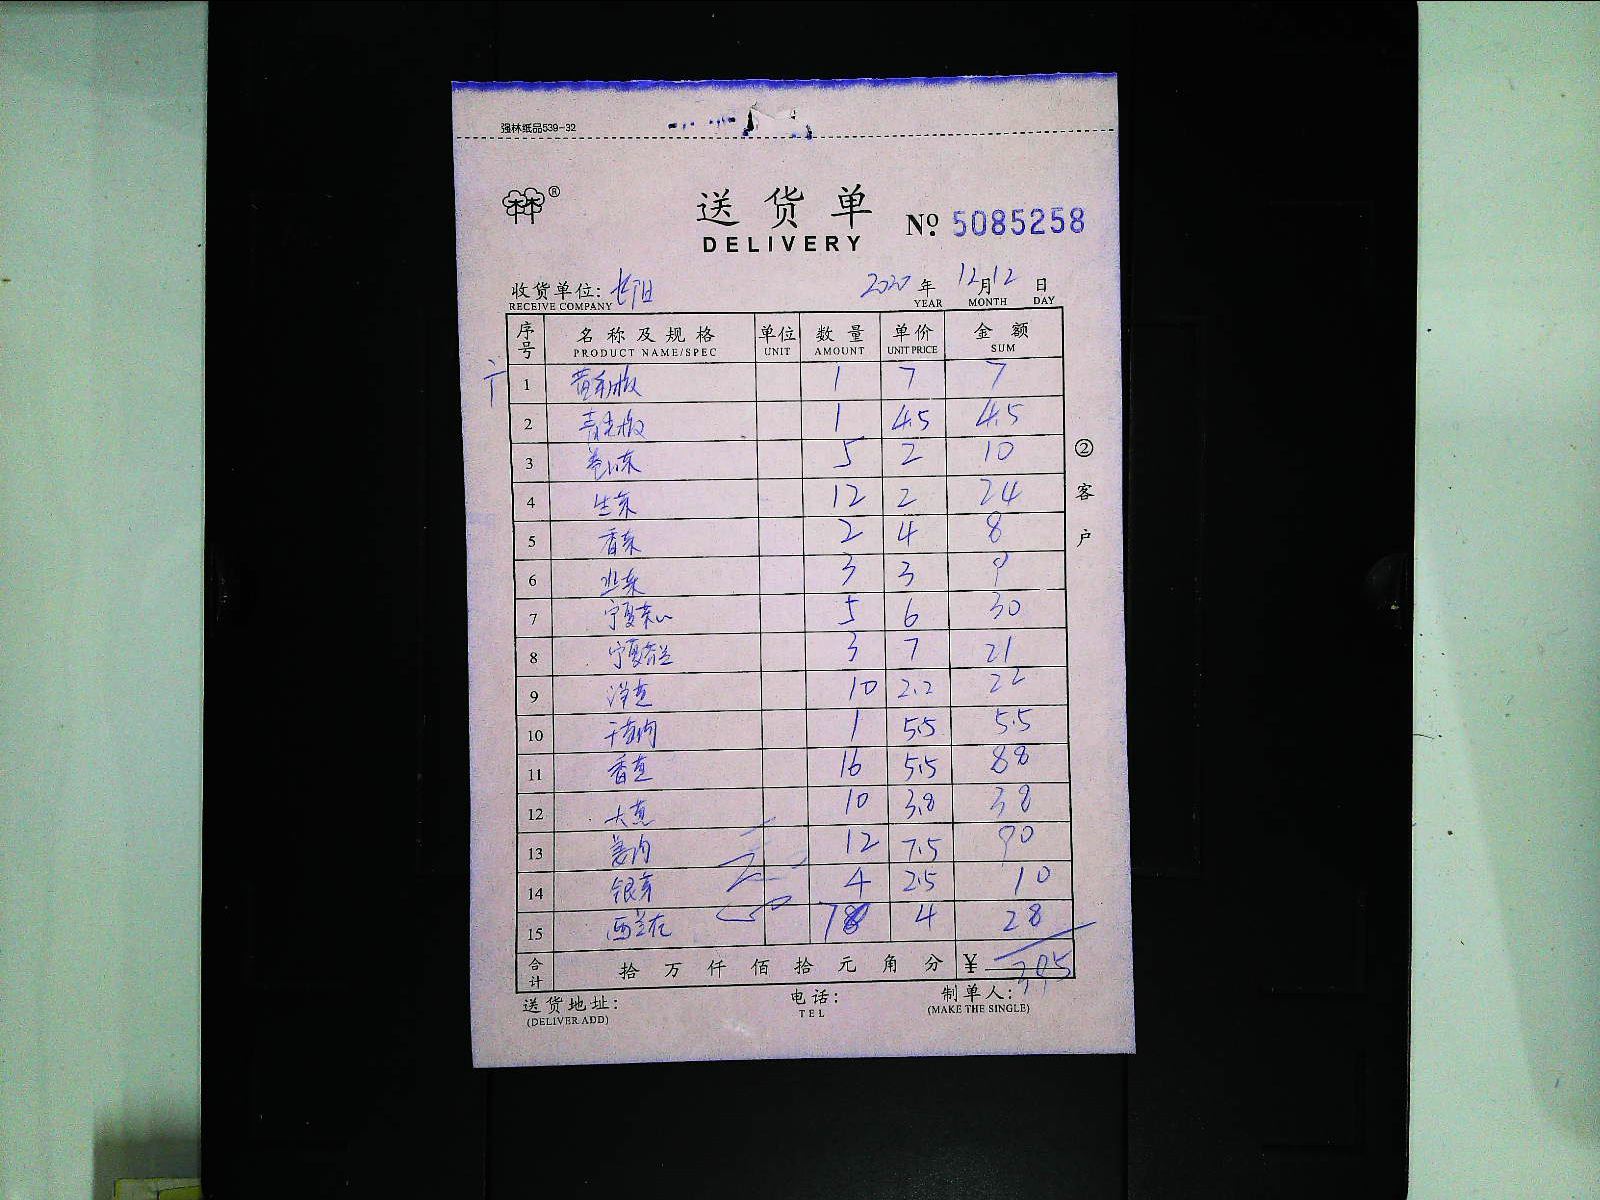 强林纸品539-32
送货单
DELIVERY
№ 5085258
收货单位: 长阳 2020年 12月12日
RECEIVE COMPANY YEAR MONTH DAY
序号 名称及规格 单位 数量 单价 金额
PRODUCT NAME/SPEC UNIT AMOUNT UNIT PRICE SUM
1 1 7 7
2 1 4.5 4.5
3 5 2 10
4 生菜 12 2 24
5 香菜 2 4 8
6 3 3 9
7 宁夏菜心 5 6 30
8 宁夏芥兰 3 7 21
9 洋 10 2.2 22
10 1 5.5 5.5
11 香 16 5.5 88
12 大 10 3.8 38
13 姜肉 12 7.5 90
14 银芽 4 2.5 10
15 西兰花 7 4 28
合计 拾 万 仟 佰 拾 元 角 分 ¥ 395
送货地址: 电话: 制单人:
(DELIVER ADD) TEL (MAKE THE SINGLE)
②客户